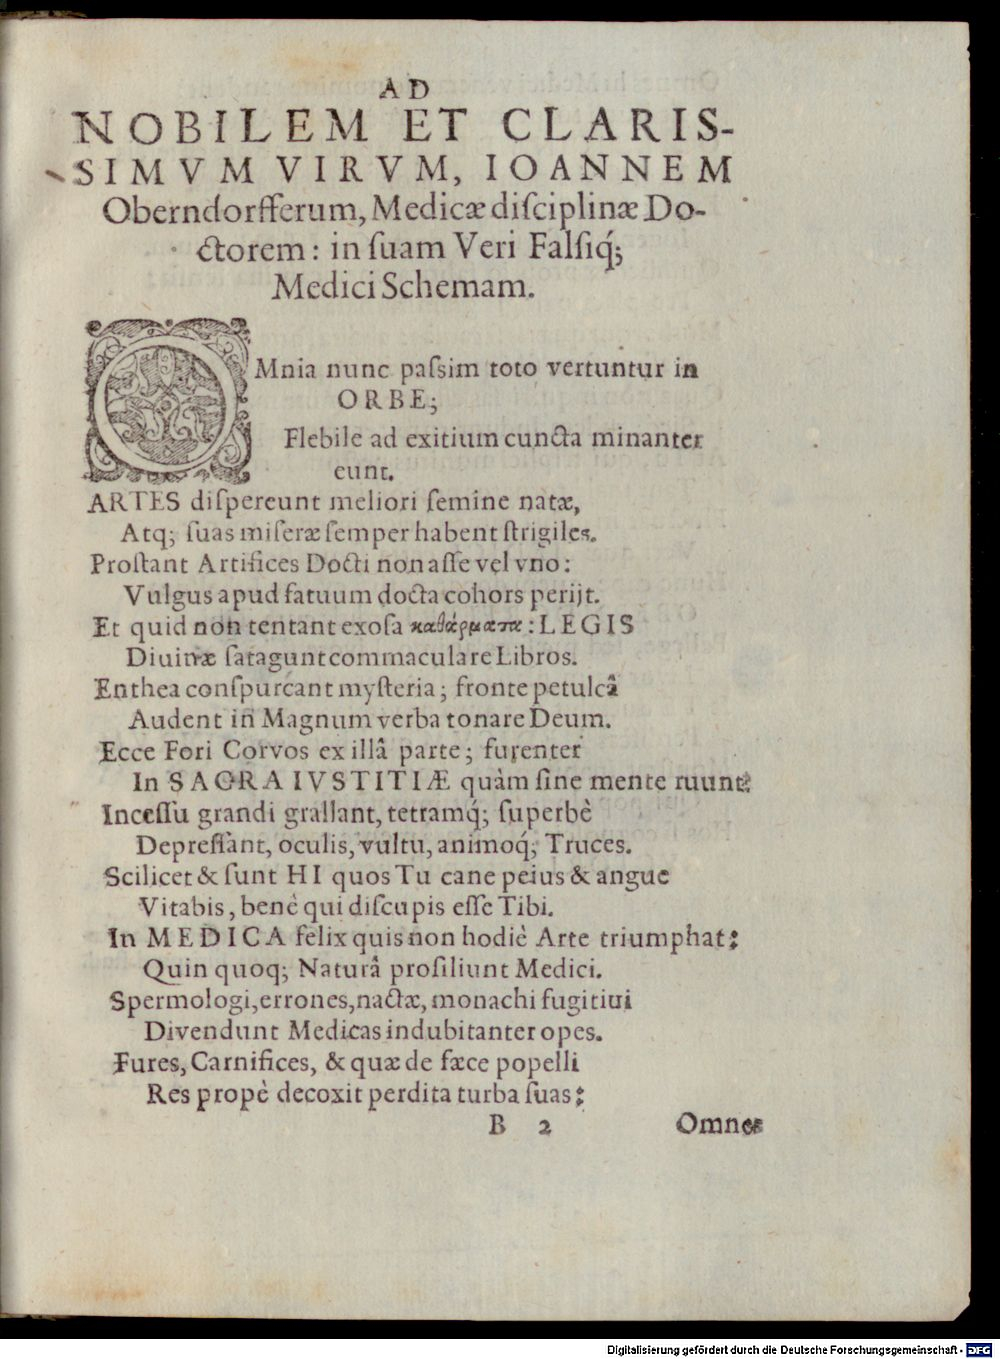 AD
NOBILEM ET CLARIS-
SIMVM VIRVM, IOANNEM
Oberndorfferum, Medicæ diſciplinæ Do-
ctorem: in ſuam Veri Falſiq́;
Medici Schemam.
OMnia nunc paſsim toto vertuntur in
ORBE;
Flebile ad exitium cuncta minanter
eunt.
ARTES diſpereunt meliori ſemine natæ,
Atq; ſuas miſeræ ſemper habent ſtrigiles.
Proſtant Artifices Docti non aſſe vel vno:
Vulgus apud fatuum docta cohors perijt.
Et quid non tentant exoſa καθάρματα: LEGIS
Diuinæ ſatagunt commaculare Libros.
Enthea conſpurcant myſteria; fronte petulcâ
Audent in Magnum verba tonare Deum.
Ecce Fori Corvos ex illâ parte; furenter
In SACRA IVSTITIÆ quàm ſine mente ruunt.
Inceſſu grandi grallant, tetramq́; ſuperbè
Depreſſant, oculis, vultu, animoq́; Truces.
Scilicet & ſunt HI quos Tu cane peius & angue
Vitabis, benè qui diſcupis eſſe Tibi.
In MEDICA felix quis non hodiè Arte triumphat:
Quin quoq; Naturâ proſiliunt Medici.
Spermologi, errones, nactæ, monachi fugitiui
Divendunt Medicas indubitanter opes.
Fures, Carnifices, & quæ de fæce popelli
Res propè decoxit perdita turba ſuas:
B 2 Omnes
Digitalisierung gefördert durch die Deutsche Forschungsgemeinschaft - DFG